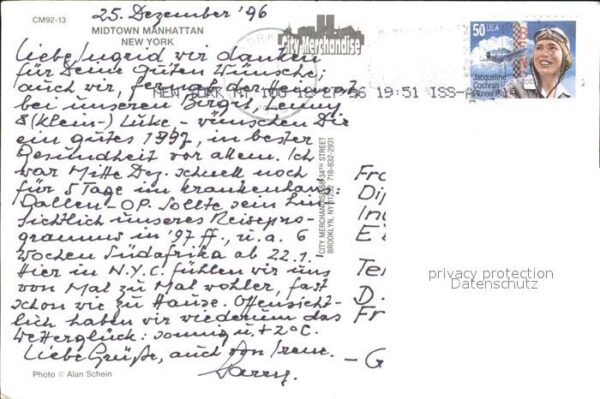 25. Dezember '96
CM92-13
MIDTOWN MANHATTAN
NEW YORK
City Merchandise
50 USA
Jacqueline
Cochran
Pioneer Pilot
Liebe Ingrid wir danken
für Deine guten Wünsche;
auch wir,
bei unseren Birgit, Lenny
& (Klein-) Luke – wünschen Dir
ein gutes 1997, in bester
Gesundheit vor allem. Ich
war Mitte Dez. schnell noch
für 5 Tage im Krankenhaus:
Gallen-OP. Sollte sein hin-
sichtlich unseres Reisepro-
gramms in '97 ff., u.a. 6
Wochen Südafrika ab 22.1.
Hier in N.Y.C. fühlen wir uns
von Mal zu Mal wohler, fast
schon wie zu Hause. Offensicht-
lich haben wir wiederum das
Wetterglück: sonnig u. +2°C.
Liebe Grüße, auch von Irene.
Harry.
NEW YORK NY 100 12-27-96 19:51
CITY MERCHANDISE 68 34TH STREET
BROOKLYN, NY 11232 718-832-2931
Fra
Dip
In
E
Te
D.
Fr
– G
privacy protection
Datenschutz
Photo © Alan Schein